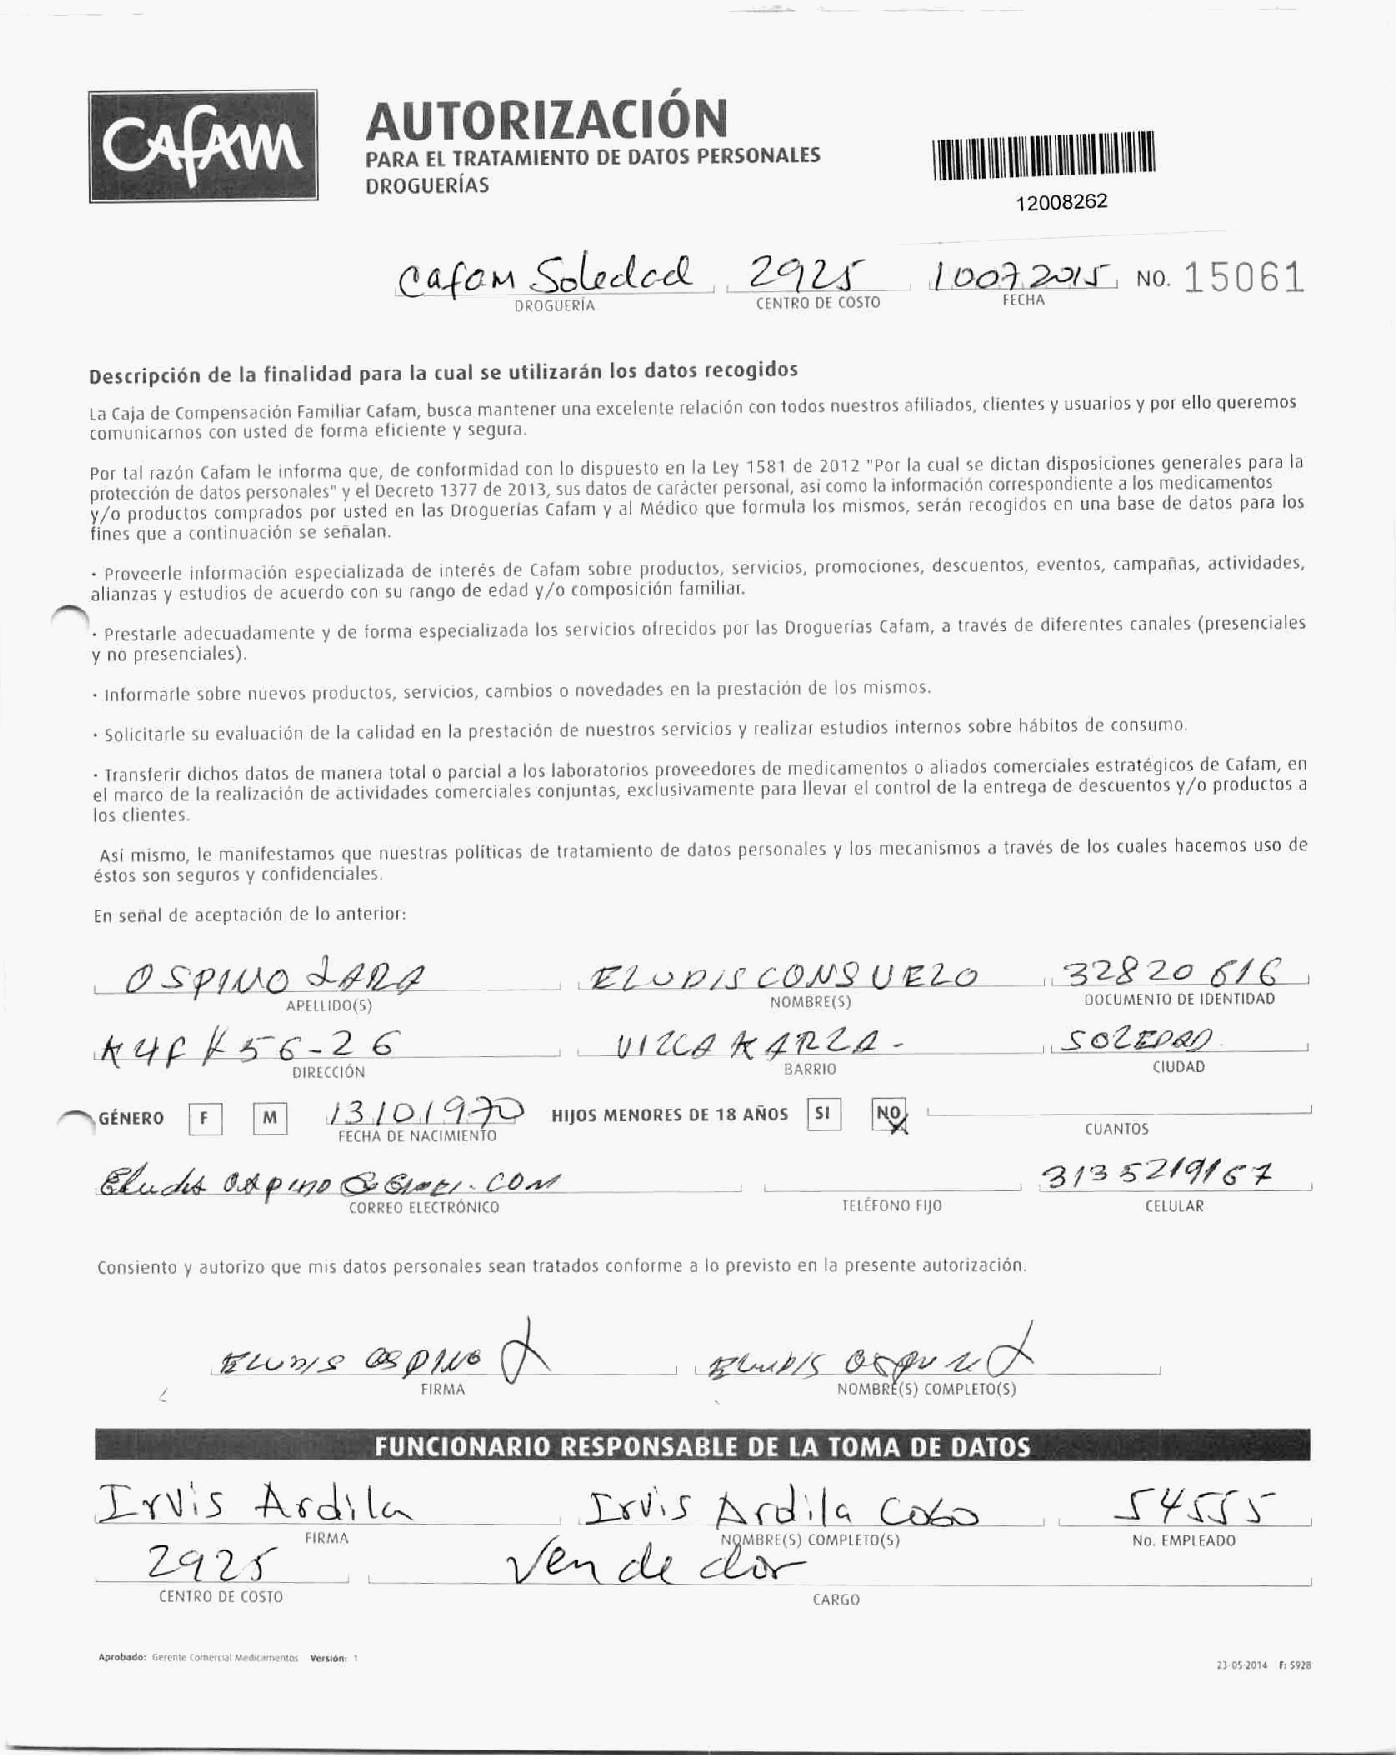 CAFAM
AUTORIZACIÓN
PARA EL TRATAMIENTO DE DATOS PERSONALES
DROGUERÍAS
12008262
Cafam Soledad 2925 10072015 NO. 15061
DROGUERÍA CENTRO DE COSTO FECHA
Descripción de la finalidad para la cual se utilizarán los datos recogidos
La Caja de Compensación Familiar Cafam, busca mantener una excelente relación con todos nuestros afiliados, clientes y usuarios y por ello queremos
comunicarnos con usted de forma eficiente y segura.
Por tal razón Cafam le informa que, de conformidad con lo dispuesto en la Ley 1581 de 2012 "Por la cual se dictan disposiciones generales para la
protección de datos personales" y el Decreto 1377 de 2013, sus datos de carácter personal, asi como la información correspondiente a los medicamentos
y/o productos comprados por usted en las Droguerías Cafam y al Médico que formula los mismos, serán recogidos en una base de datos para los
fines que a continuación se señalan.
· Proveerle información especializada de interés de Cafam sobre productos, servicios, promociones, descuentos, eventos, campañas, actividades,
alianzas y estudios de acuerdo con su rango de edad y/o composición familiar.
· Prestarle adecuadamente y de forma especializada los servicios ofrecidos por las Droguerías Cafam, a través de diferentes canales (presenciales
y no presenciales).
· Informarle sobre nuevos productos, servicios, cambios o novedades en la prestación de los mismos.
· Solicitarle su evaluación de la calidad en la prestación de nuestros servicios y realizar estudios internos sobre hábitos de consumo.
· Transferir dichos datos de manera total o parcial a los laboratorios proveedores de medicamentos o aliados comerciales estratégicos de Cafam, en
el marco de la realización de actividades comerciales conjuntas, exclusivamente para llevar el control de la entrega de descuentos y/o productos a
los clientes.
Así mismo, le manifestamos que nuestras políticas de tratamiento de datos personales y los mecanismos a través de los cuales hacemos uso de
éstos son seguros y confidenciales.
En señal de aceptación de lo anterior:
OSPINO LARA ELUDIS CONSUELO 32820616
APELLIDO(S) NOMBRE(S) DOCUMENTO DE IDENTIDAD
56-26 SOLEDAD
DIRECCIÓN BARRIO CIUDAD
GÉNERO F M 13101970 HIJOS MENORES DE 18 AÑOS SI NO
FECHA DE NACIMIENTO CUANTOS
3135219167
CORREO ELECTRÓNICO TELÉFONO FIJO CELULAR
Consiento y autorizo que mis datos personales sean tratados conforme a lo previsto en la presente autorización.
ELUDIS OSPINO L ELUDIS OSPINO L
FIRMA NOMBRE(S) COMPLETO(S)
FUNCIONARIO RESPONSABLE DE LA TOMA DE DATOS
Irvis Ardila Irvis Ardila Cobo 54555
FIRMA NOMBRE(S) COMPLETO(S) No. EMPLEADO
2925 Vendedor
CENTRO DE COSTO CARGO
Aprobado: Gerente Comercial Medicamentos Versión: 1
23-05-2014 F: 5928